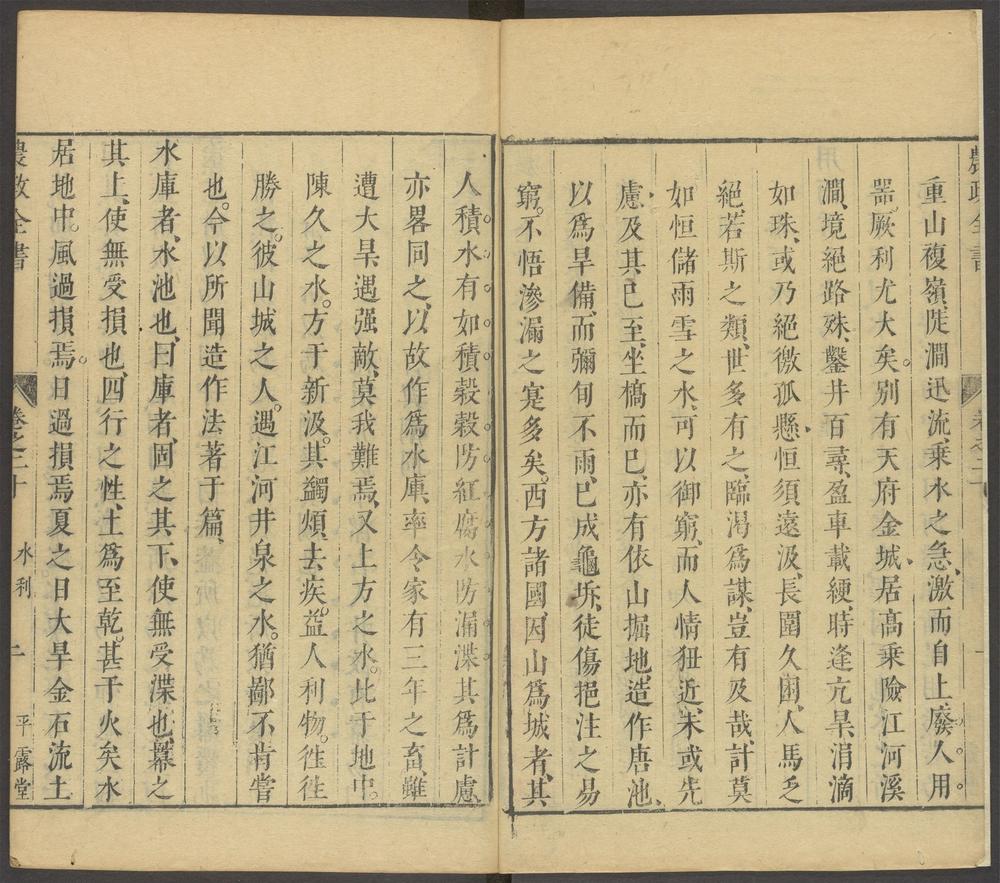 農政全書
重山複嶺、陡澗迅流、乗水之急、激而自上、廢人。用。
噐。厥利尤大矣。別有天府金城、居高乗險、江河溪
澗、境絕路殊、鑿井百尋、盈車載綆、時逢亢旱、涓滴
如珠、或乃絕徼孤懸、恒須遠汲、長圍久困、人馬乏
絕、若斯之類、世多有之、臨渴爲謀、豈有及哉、計莫
如恒儲雨雪之水、可以御窮、而人情狃近、未或先
慮、及其已至、坐槁而已、亦有依山掘地、造作唐池、
以爲旱備、而彌旬不雨、已成龜坼、徒傷挹注之易
窮。不悟滲漏之寔多矣。西方諸國、因山爲城者、其
人。積水有如積穀、穀防紅腐、水防漏渫、其爲計慮、
亦畧同之、以故作爲水庫、率令家有三年之畜、雖
遭大旱、遇强敵、莫我難焉、又上方之水。比于地中。
陳久之水。方于新汲。其蠲煩、去疾。益人利物。徃徃
勝之。彼山城之人。遇江河井泉之水。猶鄙不肯嘗
也。今以所聞造作法著于篇、
水庫者、水池也、曰庫者、固之其下、使無受渫也、冪之
其上、使無受損也、四行之性、土爲至乾。甚于火矣水
居地中。風過損焉。日過損焉夏之日大旱金石流土
農政全書
卷之二十
水利
二
平露堂